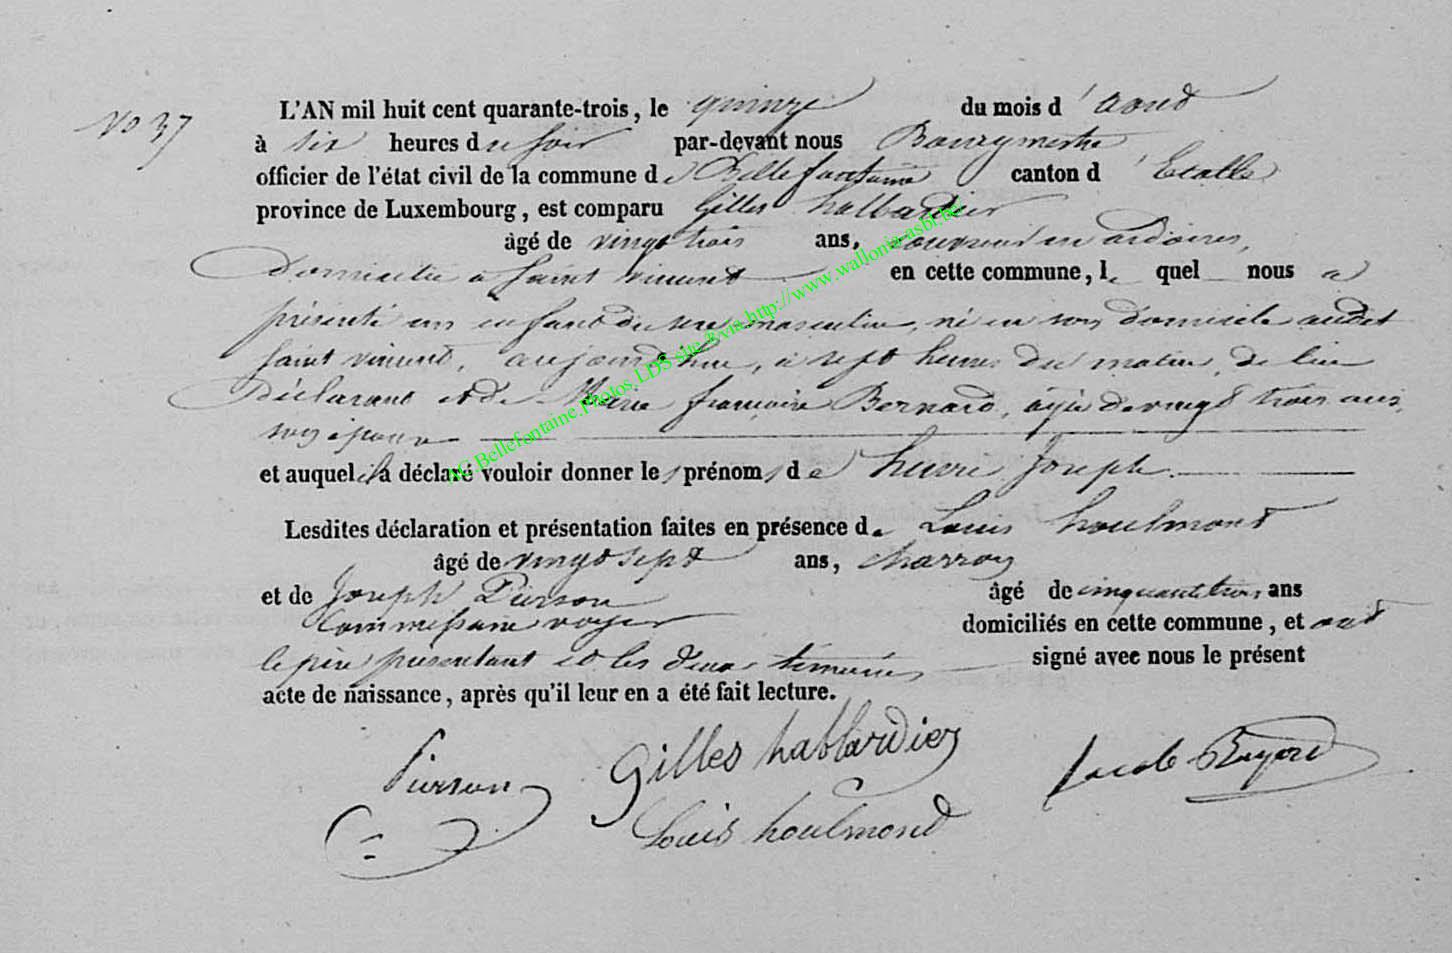 No 37
L'AN mil huit cent quarante-trois, le quinze du mois d'aout
à six heures du soir par-devant nous Bourgmestre
officier de l'état civil de la commune de Bellefontaine canton d'Etalle
province de Luxembourg, est comparu Gilles halbardier
âgé de vingt trois ans, couvreur en ardoises,
Domicilié a Saint vincent en cette commune, lequel nous a
présenté un enfant du sexe masculin, né en son domicile audit
Saint vincent, aujourd'hui, a sept heures du matin, de lui
Déclarant et de Marie françoise Bernard, agée de vingt trois ans,
son épouse
et auquel il a déclaré vouloir donner les prénoms de henri Joseph
Lesdites déclaration et présentation faites en présence de Louis houlmond
âgé de vingt sept ans, charron
et de Joseph Pierson âgé de cinquante trois ans
Commissaire voyer domiciliés en cette commune, et ont
le père présentant et les deux témoins signé avec nous le présent
acte de naissance, après qu'il leur en a été fait lecture.
Pierson Gilles hablardier Jacob Bayard
Louis houlmond
AC.Bellefontaine.Photos.LDS site &via http://www.wallonia-asbl.be/